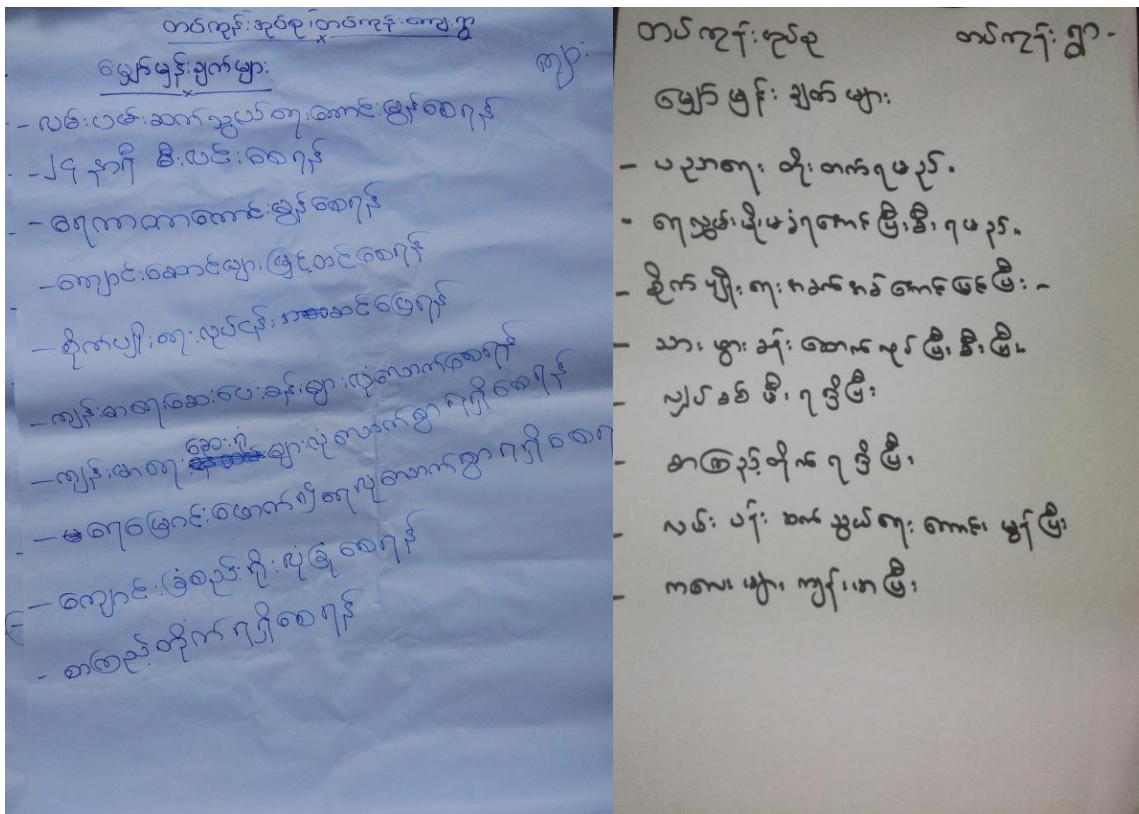 တပ်ကုန်းအုပ်စု၊ တပ်ကုန်းကျေးရွာ
မျှော်မှန်းချက်များ
ကျား
- လမ်းပမ်းဆက်သွယ်ရေးကောင်းမွန်စေရန်
- ၂၄ နာရီ မီးလင်းစေရန်
- ရေကာတာကောင်းမွန်စေရန်
- ကျောင်းဆောင်များမြှင့်တင်စေရန်
- စိုက်ပျိုးရေးလုပ်ငန်း ဆင်ပြေရန်
- ကျန်းမာရေးဆေးပေးခန်းများလုံလောက်စေရန်
- ကျန်းမာရေး ဆေးရုံ များလုံလောက်စွာရရှိစေရန်
- ရေမြောင်းဖောက်ပြီးရေလုံလောက်စွာရရှိစေရ
- ကျောင်းခြံစည်းရိုးလုံခြုံစေရန်
- စာကြည့်တိုက်ရရှိစေရန်
တပ်ကုန်းအုပ်စု တပ်ကုန်းရွာ -
မျှော်မှန်းချက်များ
- ပညာရေး တိုးတက်ရမည်။
- ရေလွှမ်းမိုးမခံရကောင်းပြီးစီးရမည်။
- စိုက်ပျိုးရေး ကောင်းမြင်ပြီး -
- သားဖွားခန်းဆောက်လုပ်ပြီးစီးပြီး
- လျှပ်စစ်မီးရရှိပြီး
- စာကြည့်တိုက်ရရှိပြီး
- လမ်းပန်းဆက်သွယ်ရေးကောင်းမွန်ပြီး
- ကလေးများကျန်းမာပြီး